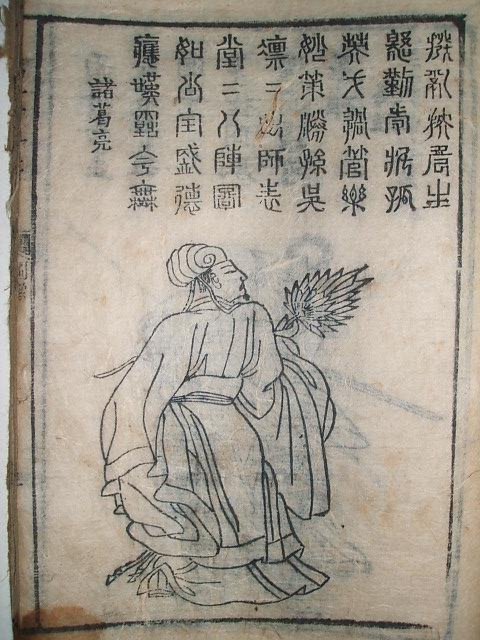 撥亂扶危主
慇勤受託孤
英才過管樂
妙策勝孫吳
凛二出師表
堂二八陣圖
如公全盛德
應嘆古今無
諸葛亮